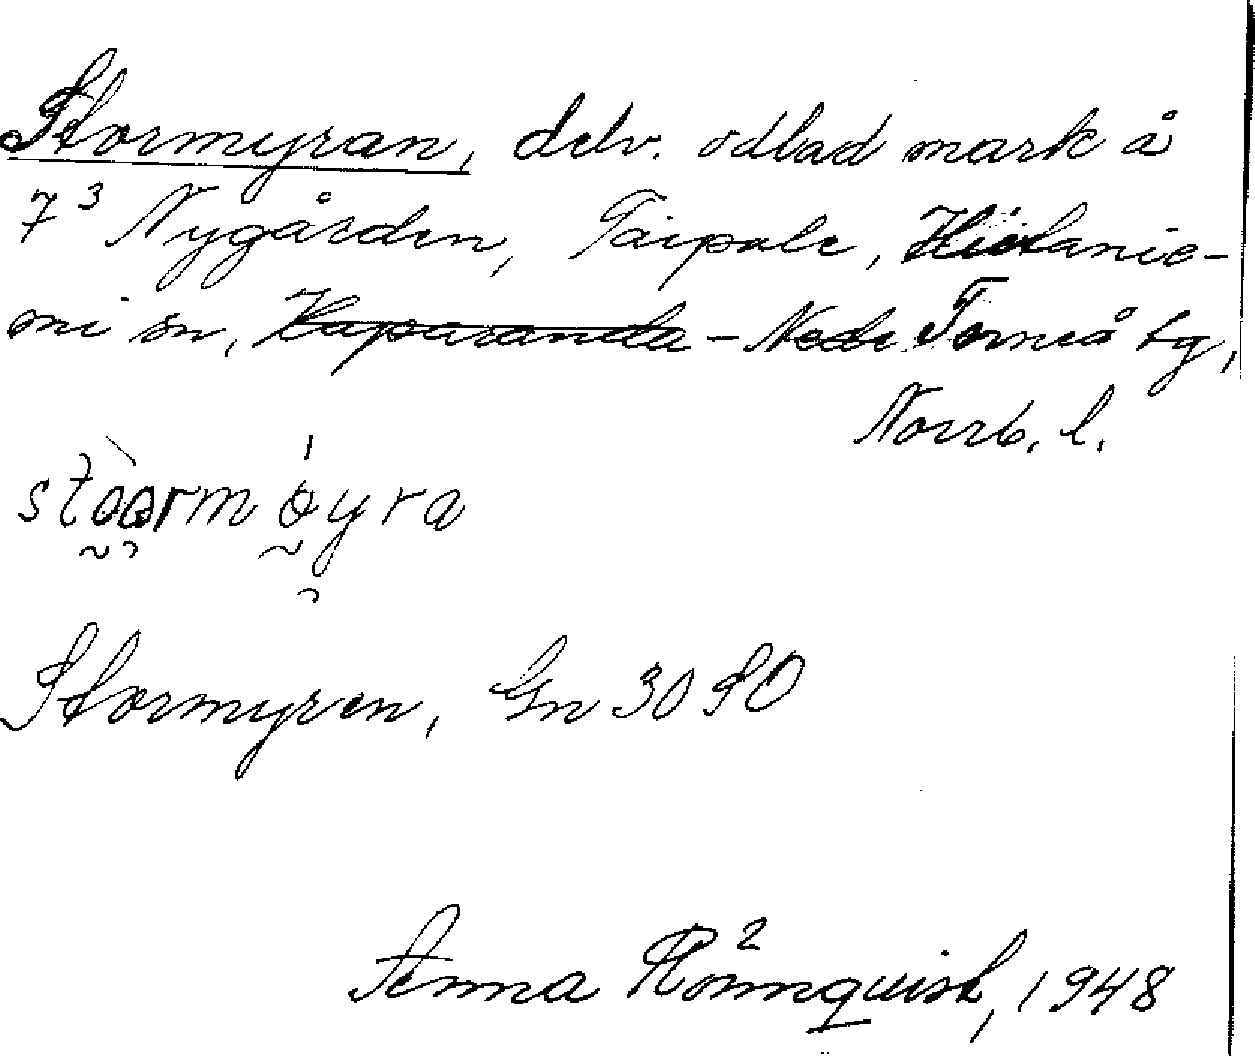 Stormyran, delv. odlad mark å
7³ Nygården, Taipale, Hietanie-
mi sn, Haparanda - Neder Torneå tg,
Norrb. l.
stoormøyra
Stormyren, Gn 30 SO
Anna Rönnquist, 1948